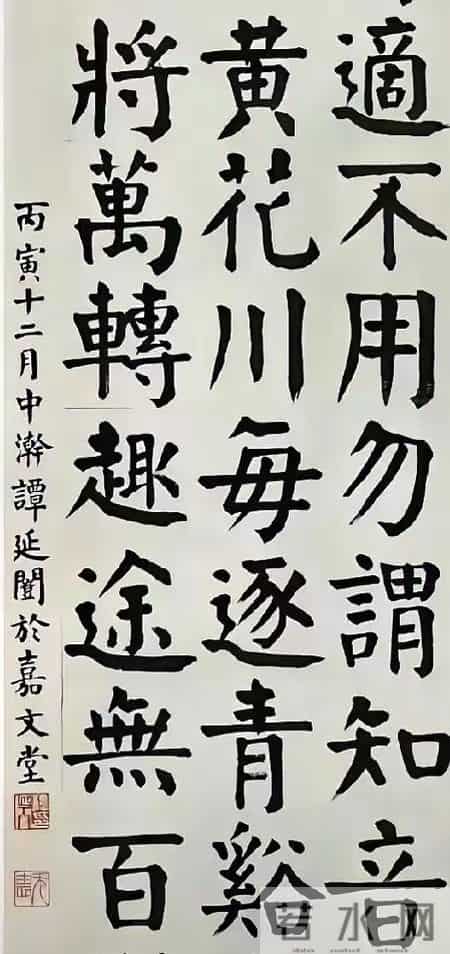 適不用勿謂知音
黄花川毎逐青谿
將萬轉趣途無百
丙寅十二月中澣譚延闓於嘉文堂
若水网